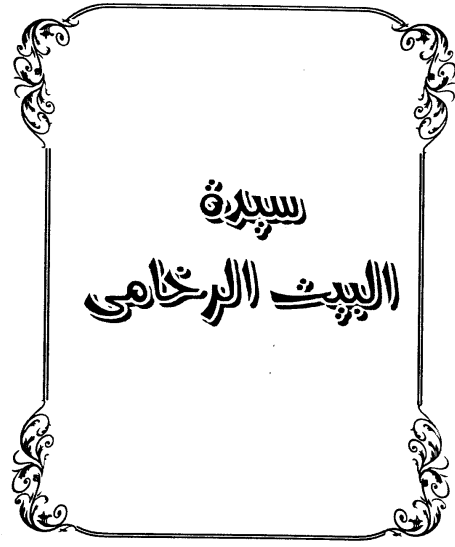 سيرة
البيت الرخامى